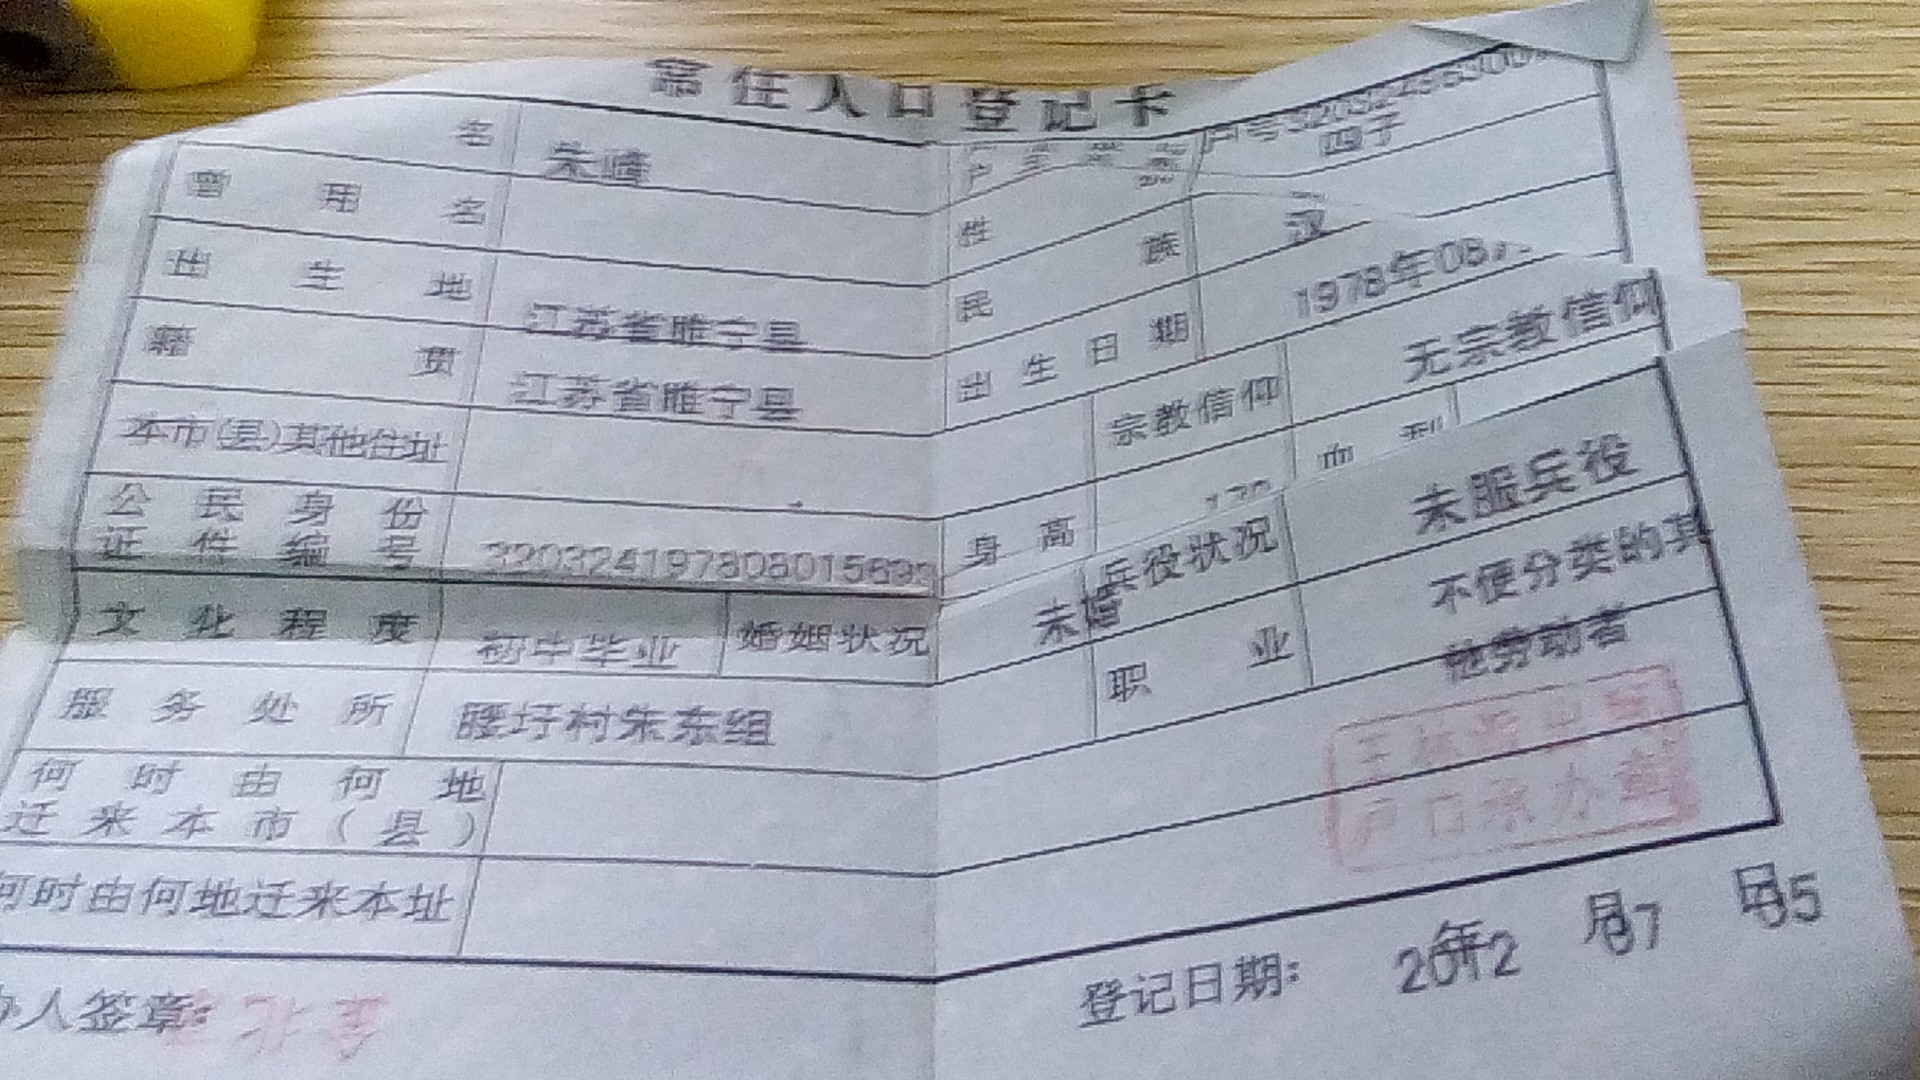 常住人口登记卡
户号
名 朱峰 四子
曾用名 性
族 汉
出生地 江苏省睢宁县 民
出生日期 1978年08
籍贯 江苏省睢宁县 宗教信仰 无宗教信仰
本市(县)其他住址
公民身份
证件编号 身高
文化程度 初中毕业 婚姻状况 未婚 兵役状况 未服兵役
服务处所 腰圩村朱东组 职业 不便分类的其
他劳动者
何时由何地
迁来本市(县)
户口承办章
何时由何地迁来本址
人签章: 登记日期: 2012年07月05日